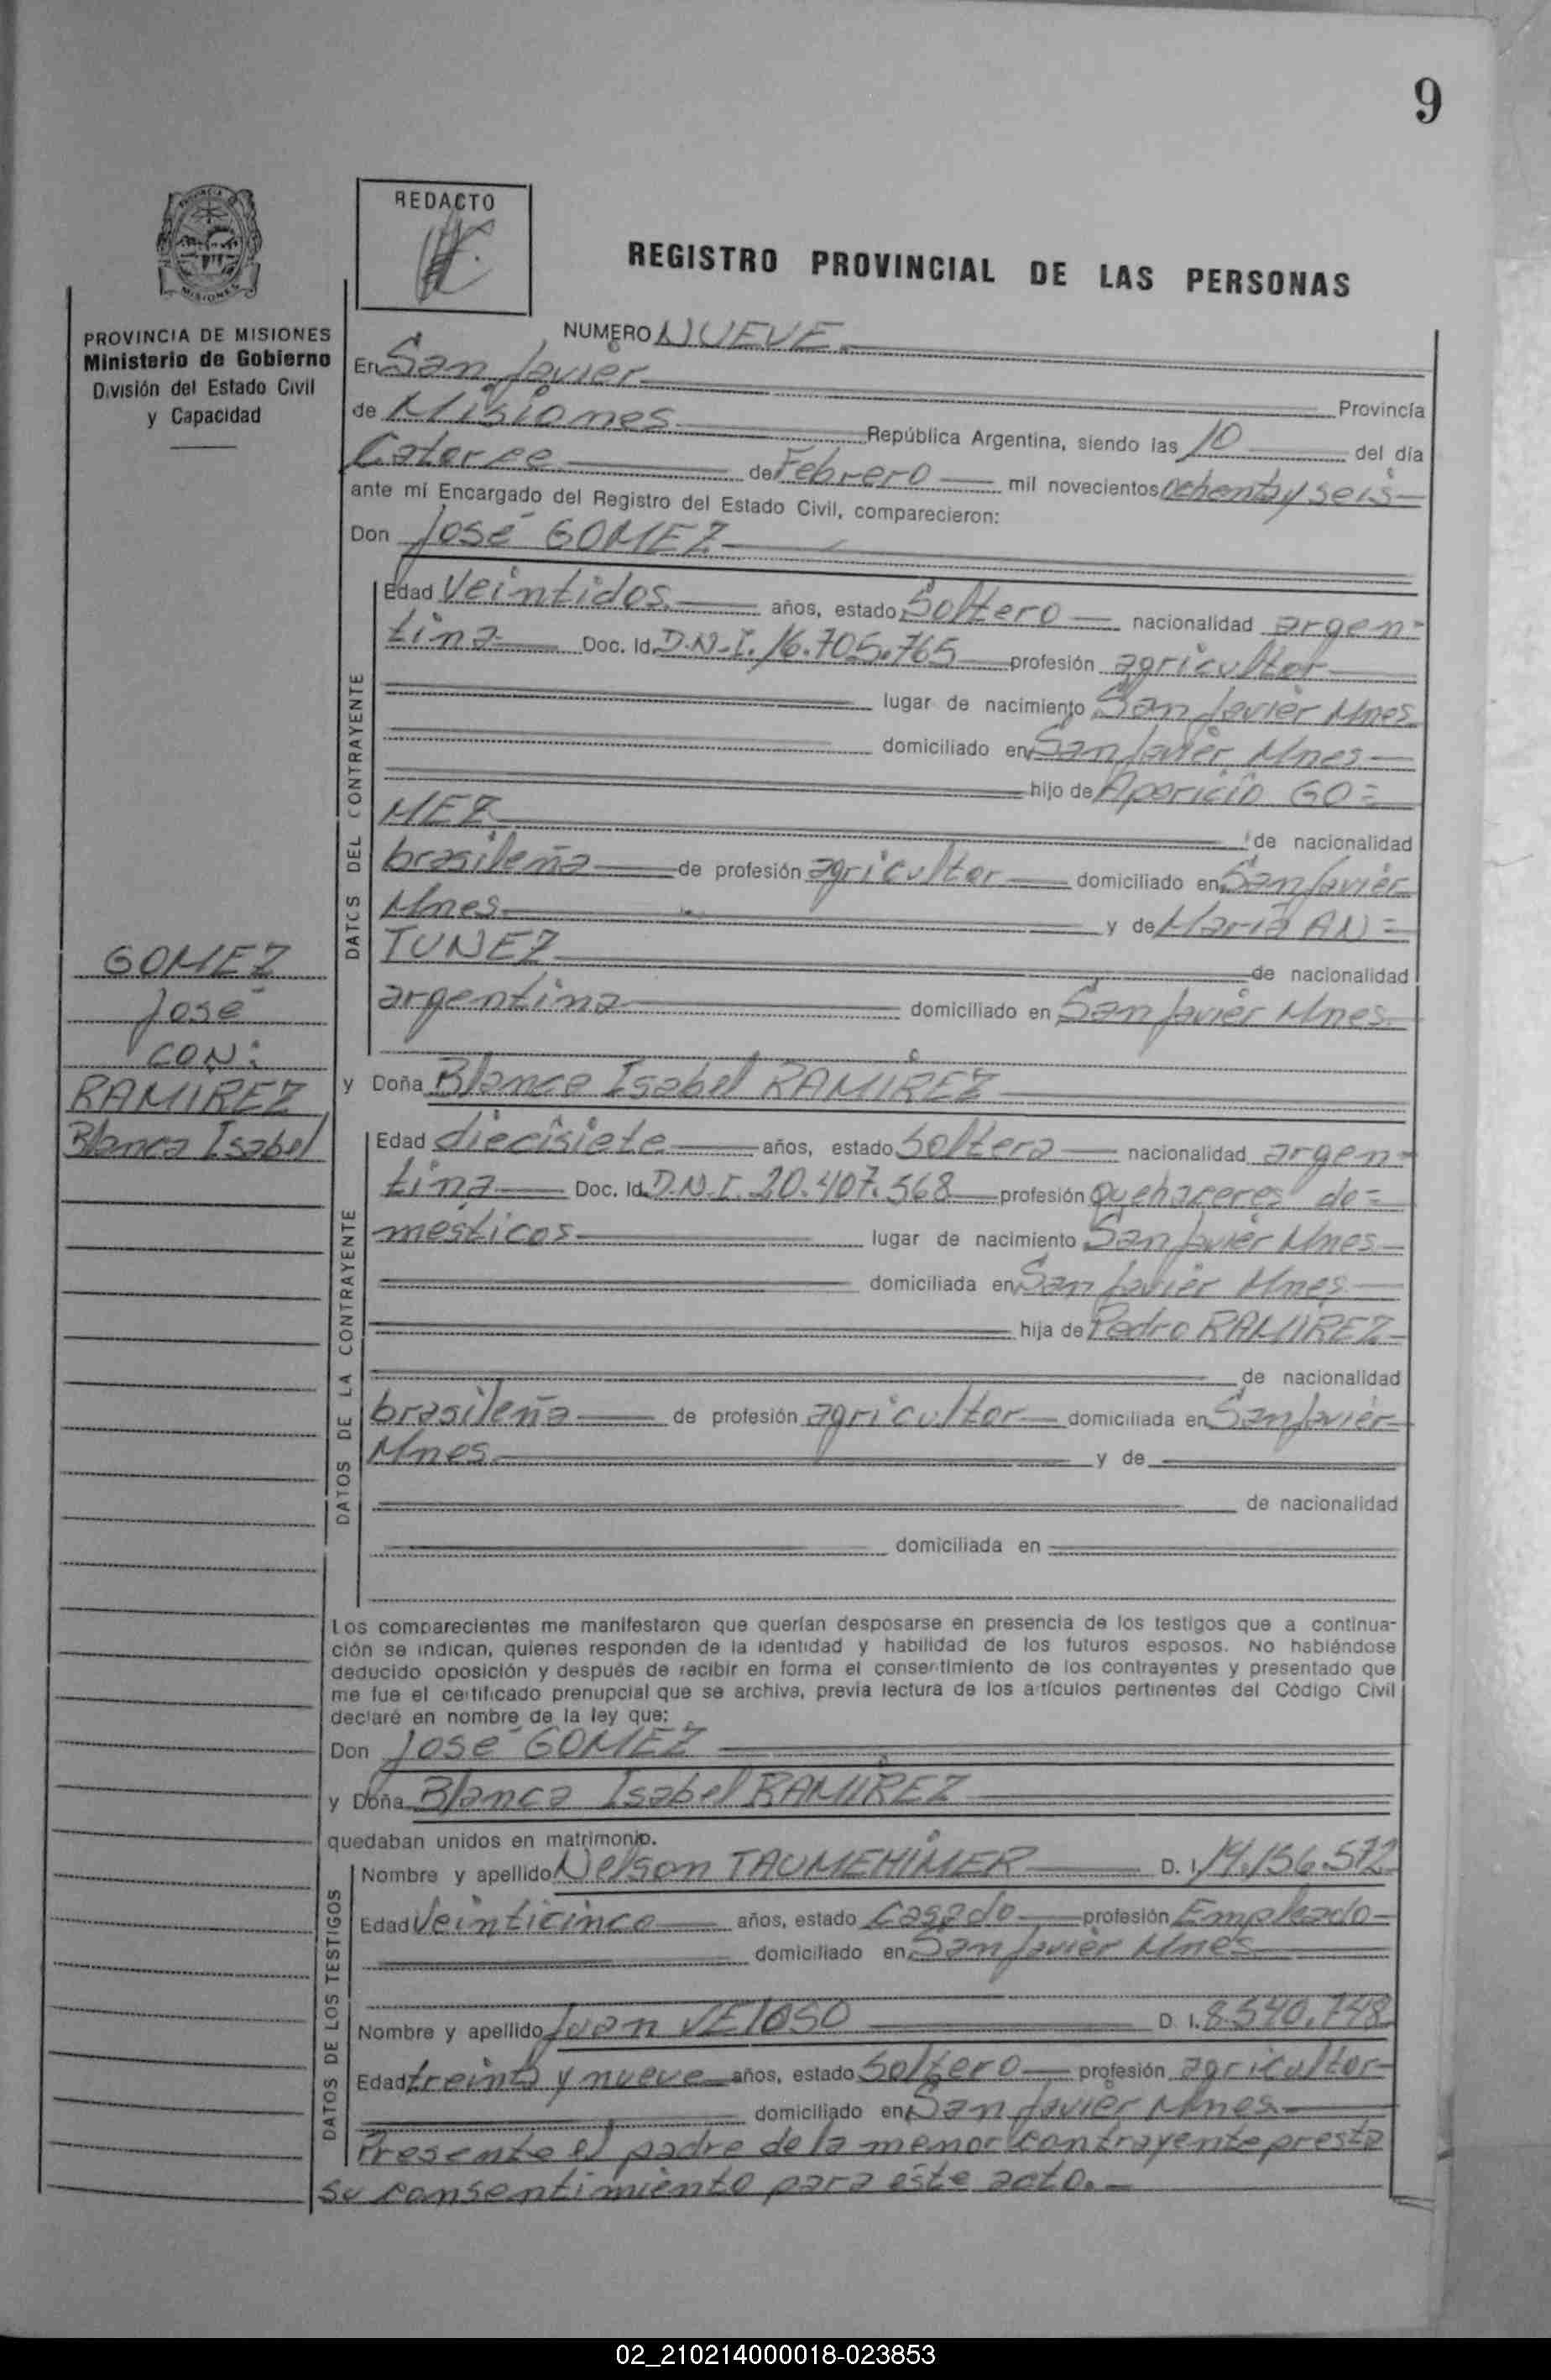 9
REDACTO
REGISTRO PROVINCIAL DE LAS PERSONAS
MISIONES
PROVINCIA DE MISIONES
Ministerio de Gobierno
División del Estado Civil
y Capacidad
GOMEZ
José
CON:
RAMIREZ
Blanca Isabel
NUMERO NUEVE
En San Javier Provincia
de Misiones República Argentina, siendo las 10 del día
Catorce de Febrero mil novecientos ochenta y seis
ante mí Encargado del Registro del Estado Civil, comparecieron:
Don José GOMEZ
DATOS DEL CONTRAYENTE
Edad Veintidos años, estado Soltero nacionalidad argen=
tina Doc. Id. D.N.I. 16.705.765 profesión agricultor
lugar de nacimiento San Javier Mnes
domiciliado en San Javier Mnes
hijo de Aparicio GO=
MEZ de nacionalidad
brasileña de profesión agricultor domiciliado en San Javier
Mnes y de María AN=
TUNEZ de nacionalidad
argentina domiciliado en San Javier Mnes.
y Doña Blanca Isabel RAMIREZ
DATOS DE LA CONTRAYENTE
Edad diecisiete años, estado Soltera nacionalidad argen=
tina Doc. Id. D.N.I. 20.407.568 profesión Quehaceres do=
mésticos lugar de nacimiento San Javier Mnes
domiciliada en San Javier Mnes
hija de Pedro RAMIREZ
de nacionalidad
brasileña de profesión agricultor domiciliada en San Javier
Mnes y de
de nacionalidad
domiciliada en
Los comparecientes me manifestaron que querían desposarse en presencia de los testigos que a continua-
ción se indican, quienes responden de la identidad y habilidad de los futuros esposos. No habiéndose
deducido oposición y después de recibir en forma el consentimiento de los contrayentes y presentado que
me fue el certificado prenupcial que se archiva, previa lectura de los artículos pertinentes del Código Civil
declaré en nombre de la ley que:
Don José GOMEZ
y Doña Blanca Isabel RAMIREZ
quedaban unidos en matrimonio.
DATOS DE LOS TESTIGOS
Nombre y apellido Nelson TAUMEHIMER D. I. 14.156.572
Edad Veinticinco años, estado Casado profesión Empleado
domiciliado en San Javier Mnes
Nombre y apellido Juan VELOSO D. I. 8.540.748
Edad treinta y nueve años, estado Soltero profesión agricultor
domiciliado en San Javier Mnes
Presente el padre de la menor contrayente presta
su consentimiento para éste acto.-
02_210214000018-023853